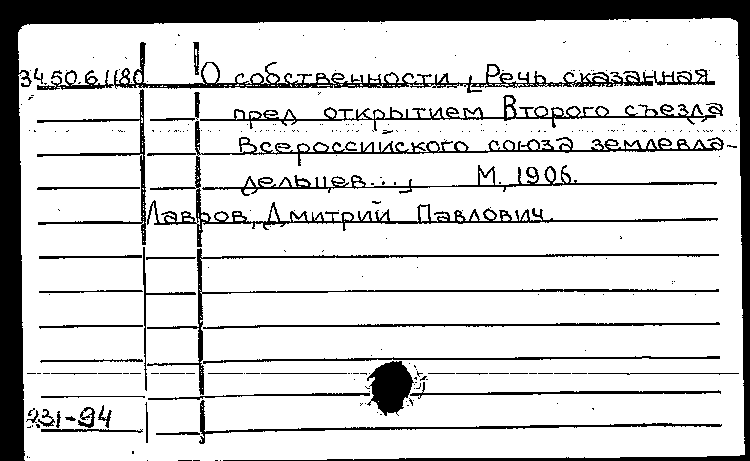 34.50.6.1180 О собственности [Речь сказанная
пред открытием Второго съезда
Всероссийского союза землевла-
дельцев...] М., 1906.
Лавров, Дмитрий Павлович.
231-94